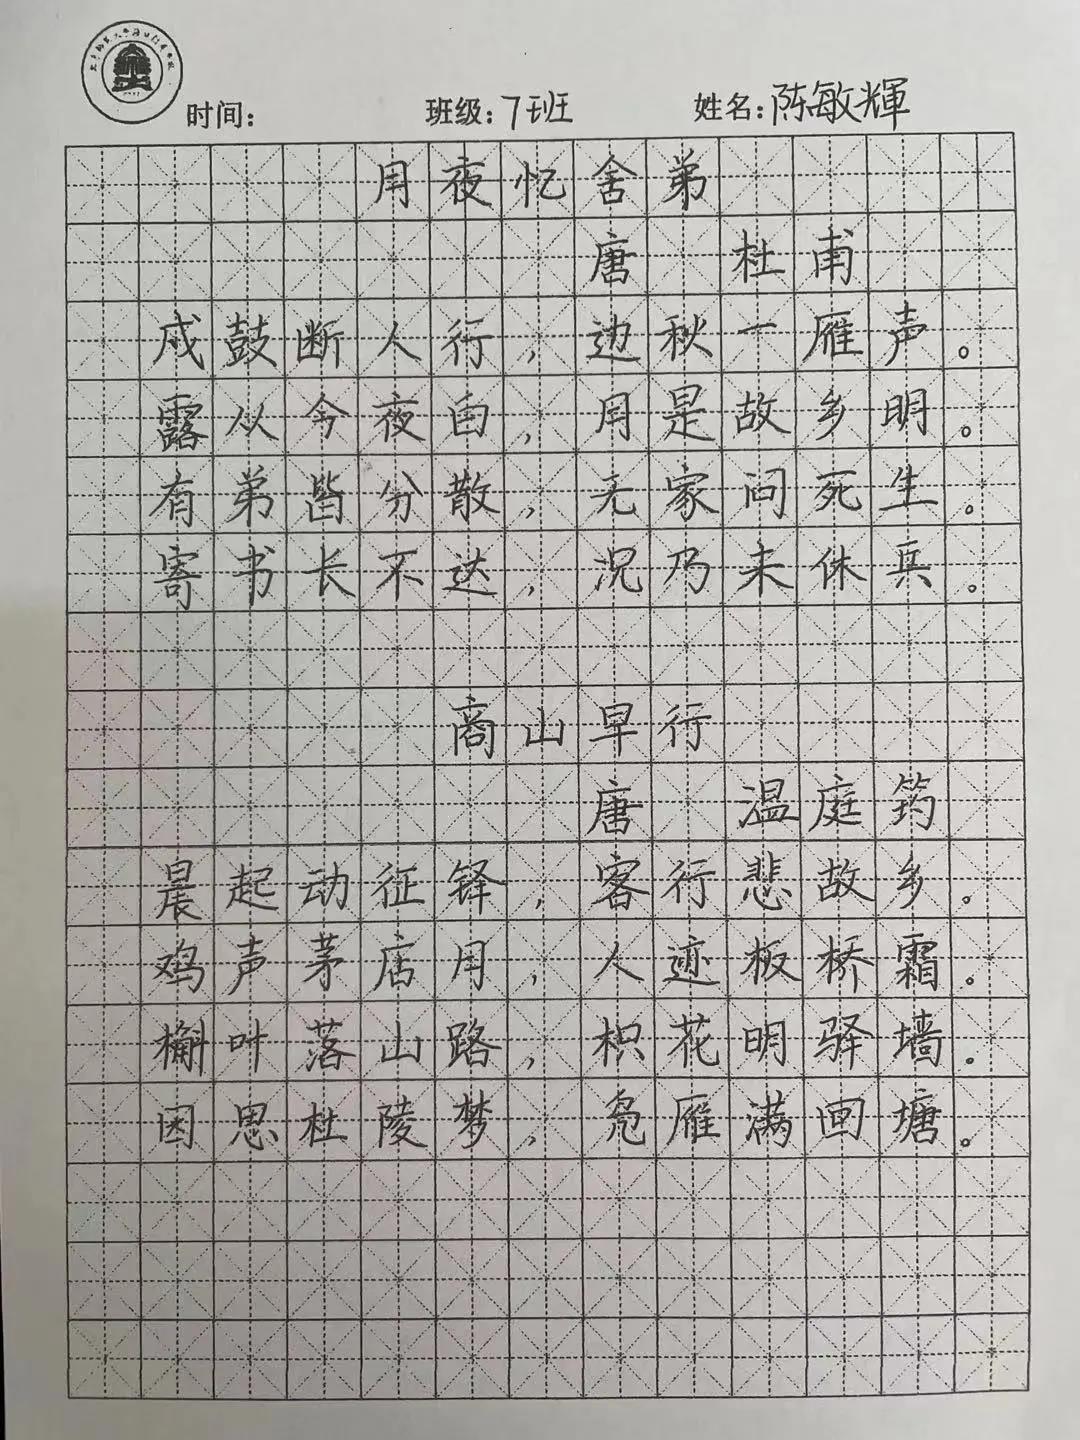 时间： 班级：7班 姓名：陈敏輝
月夜忆舍弟
唐 杜甫
戍鼓断人行，边秋一雁声。
露从今夜白，月是故乡明。
有弟皆分散，无家问死生。
寄书长不达，况乃未休兵。
商山早行
唐 温庭筠
晨起动征铎，客行悲故乡。
鸡声茅店月，人迹板桥霜。
槲叶落山路，枳花明驿墙。
因思杜陵梦，凫雁满回塘。